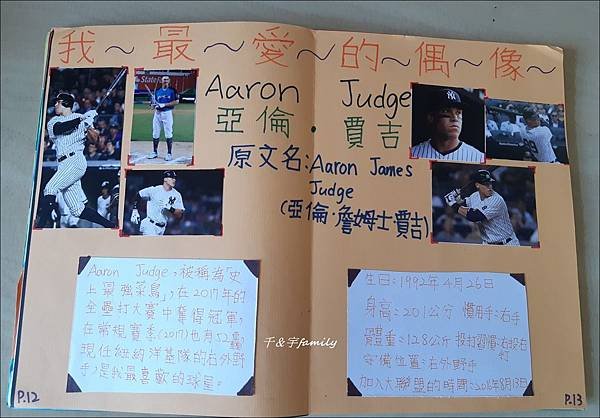 我～最～愛～的～偶～像～
Aaron Judge
亞倫．賈吉
原文名：Aaron James
Judge
(亞倫．詹姆士賈吉)
Aaron Judge，被稱為「史
上最強菜鳥」，在2017年的
全壘打大賽中奪得冠軍，
在常規賽季(2017)也有52轟，
現任紐約洋基隊的右外野
手，是我最喜歡的球星。
生日：1992年4月26日
身高：201公分 慣用手：右手
體重：128公斤 投打習慣：右投右打
守備位置：右外野手
加入大聯盟的時間：2016年8月13日
千&宇family
P.12
P.13